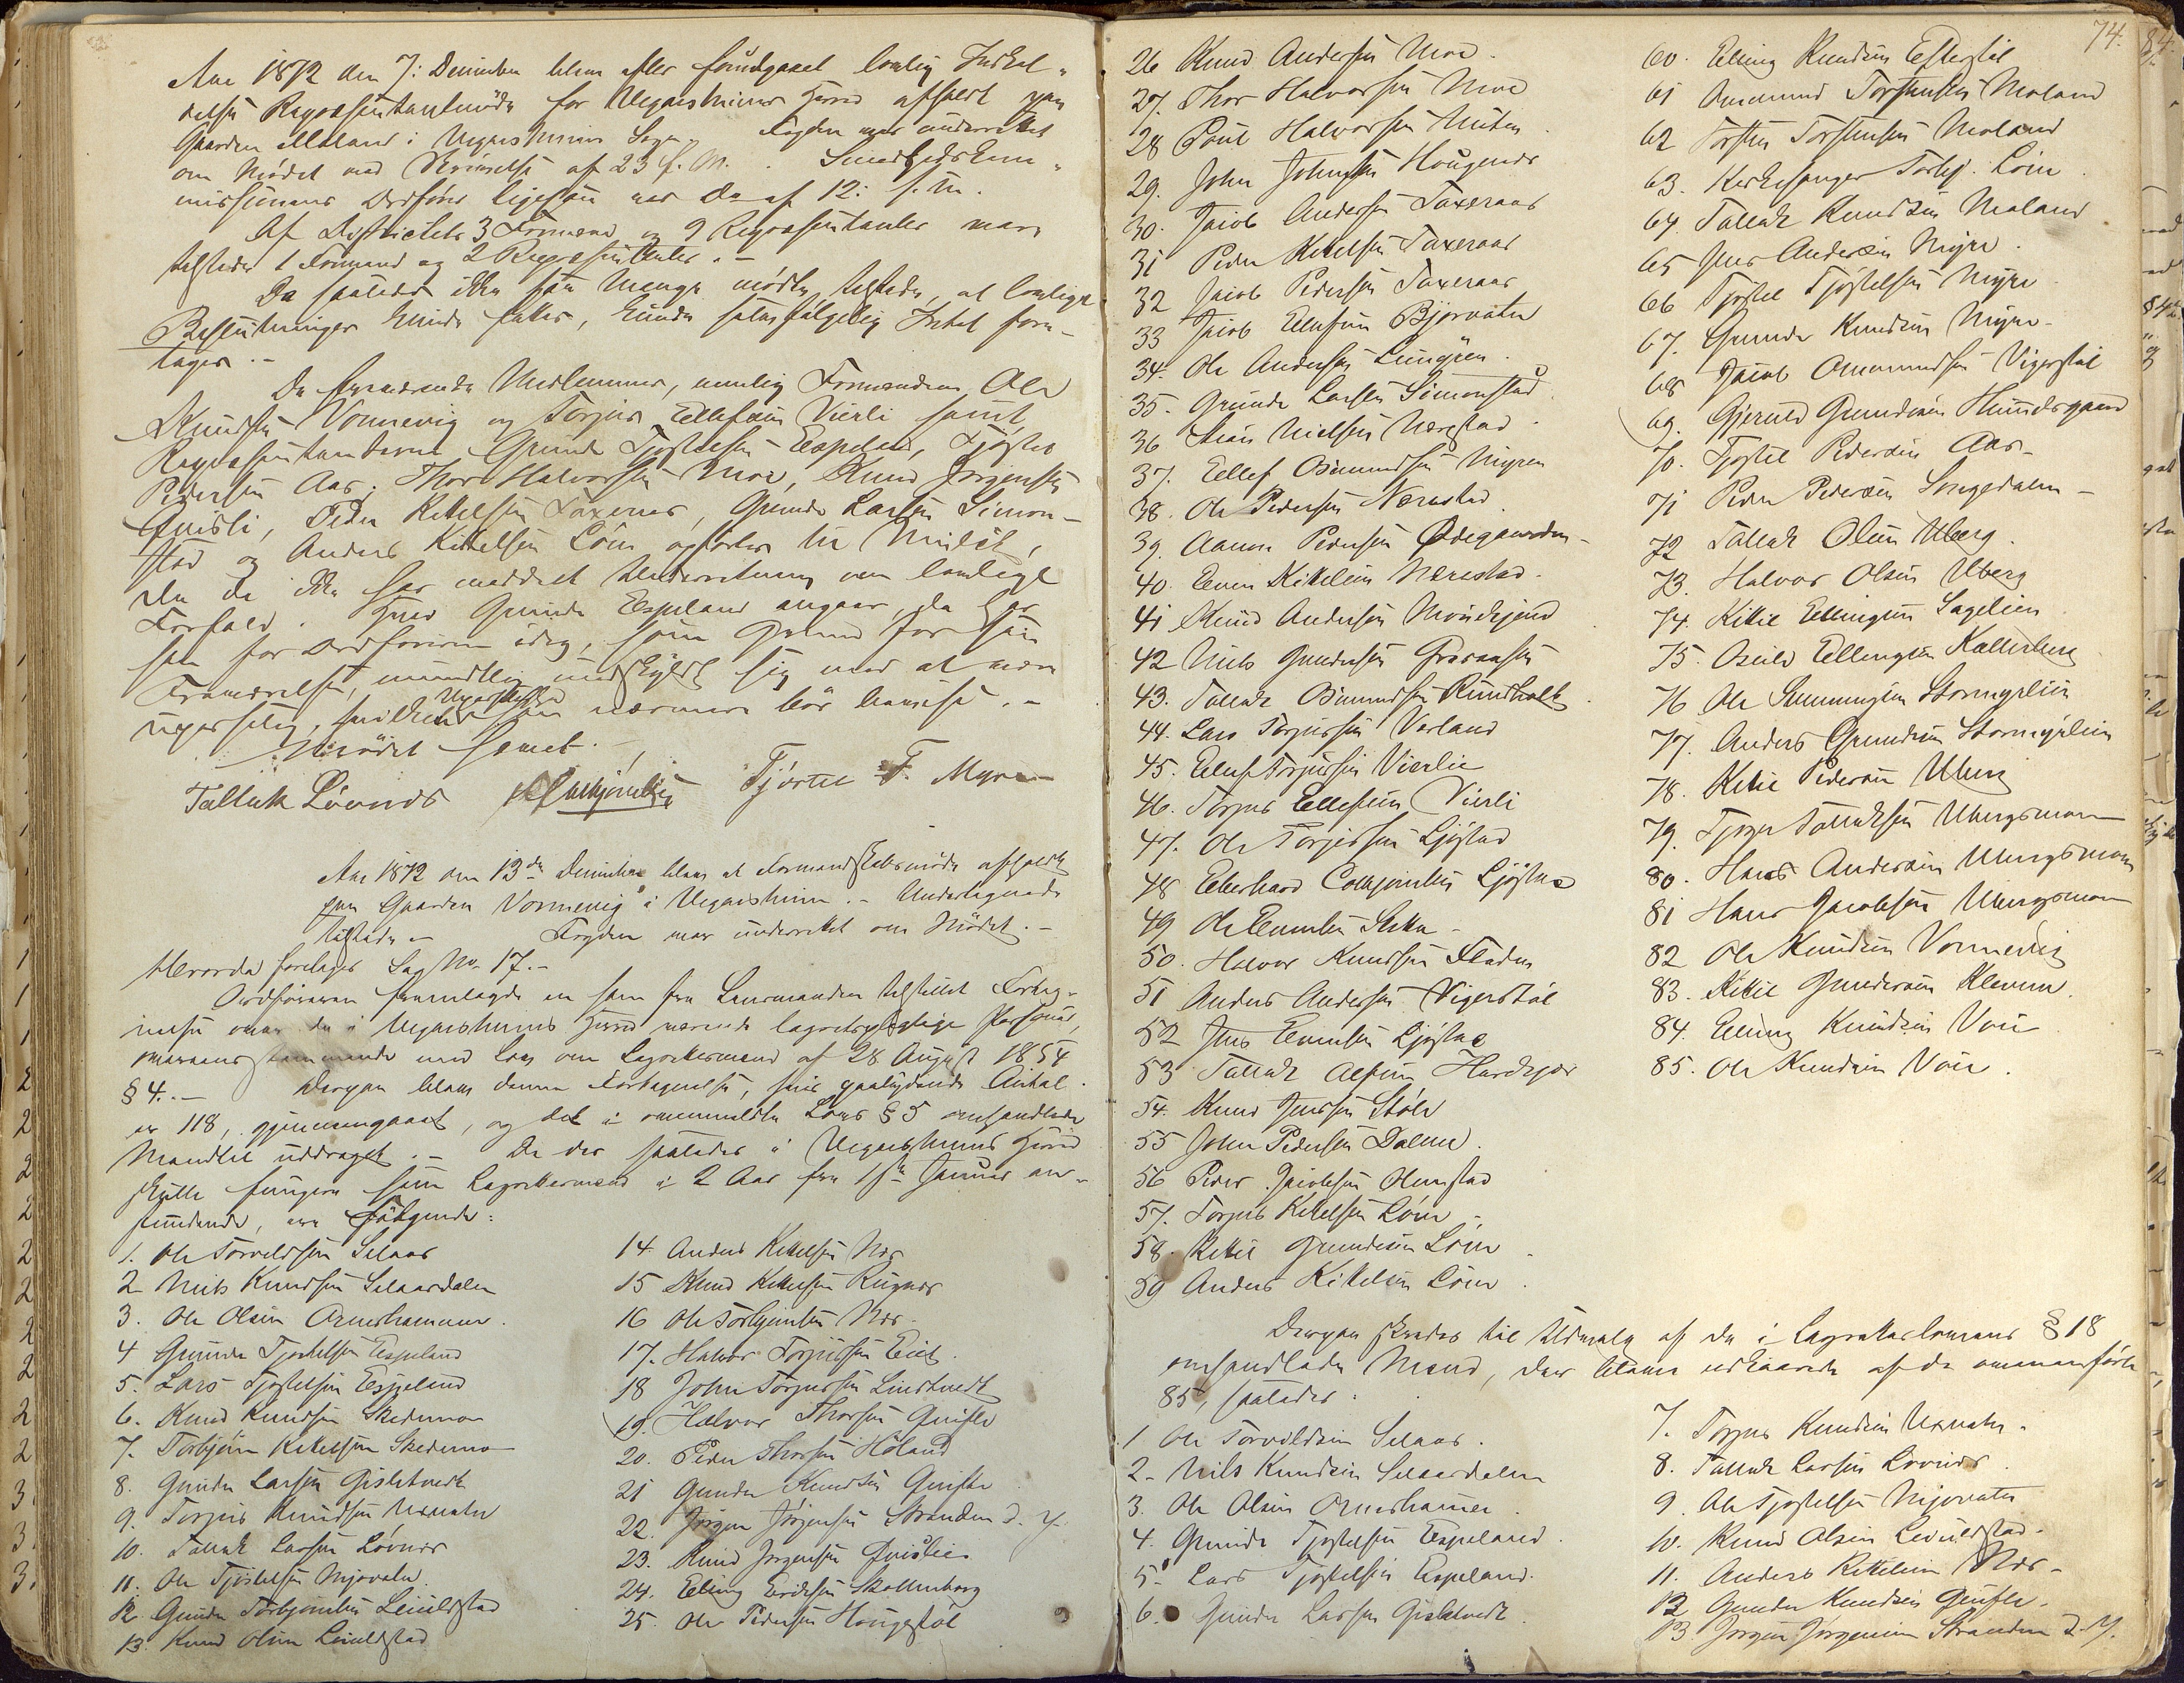 Aar 1872 den 7: December blev efter forudgaaet lovlig Indkal-
delse Repræsentantmøde for Vegaarsheiens Herred afholdt paa
Gaarden Moland i Vegaarsheiens Sogn. Fogden var underrettet
om Mødet ved Skrivelse af 23 f. M. Sundhedskom-
missionens Ordfører ligesaa ved Do af 12: f. M.
Af Districtets 3 Formænd og 9 Repræsentanter vare
tilstede 1 Formand og 2 Repræsentanter. -
Da saaledes ikke saa Mange mødte tilstede, at lovlige
Beslutninger kunde fattes, kunde følgelig Intet fore-
tages. -
De fraværende Medlemmer, nemlig Formændene Ole
Knudsen Vonnevig og Torjus Ellefsen Vierli samt
Repræsentanterne Gunder Tjostelsen Espeland, Tjøstel
Pedersen Aas, Thor Halvorsen Moe, Knud Jørgensen
Qvisli, Peder Kittelsen Taxeraas, Gunder Larsen Simon-
stad og Anders Kittelsen Løin opføres til Mulct,
da de ikke har meddelt Underretning om lovligt
Forfald. Hvad Gunder Espeland angaar, da har
han for Ordføreren idag, som Grund for sin
Fraværelse, mundtlig undskyldt sig med at være
upasselig, hvilken Upasselighed han nærmere bør bevise. -
Mødet hævet. -
Tallak Løvnes Tjøstel T. Myre
Aar 1872 den 13de December blev et Formandskabsmøde afholdt
paa Gaarden Vonnevig i Vegaarsheien. - Undertegnede
tilstede - Fogden var underrettet om Mødet. -
Hvorda foretages Sag No 17. -
Ordføreren fremlagde en ham fra Lensmanden tilstillet Forteg-
nelse over de i Vegaarsheiens Herred værende lagretspligtige Personer,
overensstemmende med Lov om Lagrettemænd af 28 August 1854
§ 4. - Derpaa blev denne Fortegnelse, hvis paalydende Antal
er 118, gjennemgaaet, og det i ommeldte Lovs § 5 omhandlede
Mandtal uddraget. - De der saaledes i Vegaarsheiens Herred
skulle fungere som Lagrettemænd i 2 Aar fra 1ste Januar an-
stundende, ere følgende:
1. Ole Torvildsen Selaas
2 Niels Knudsen Selaasdalen
3. Ole Olsen Ormerhammer.
4 Gunder Tjostelsen Espeland
5. Lars Tjostelsen Espeland
6. Knud Knudsen Skedemo
7. Torbjørn Kittelsen Skedemo
8. Gunder Larsen Gisletvedt
9. Torjus Knudsen Uxvatn
10. Tallak Larsen Løvnes
11. Ole Tjøstelsen Mjovatn
12. Gunder Torbjørnsen Leiulfstad
13. Knud Olsen Leiulfstad
14. Anders Kittelsen Næs
15 Knud Kittelsen Rugnes
16 Ole Torbjørnsen Næs.
17. Halvor Torjussen Eid.
18 John Torjussen Lindtvedt
19. Halvor Thorsen Qvifte
20. Peder Thorsen Høland
21 Gunder Knudsen Qvifte
22. Jørgen Jørgensen Stranden d. y.
23. Knud Jørgensen Qvislie
24. Elling Eriksen Skallenborg
25. Ole Pedersen Haugestøl
74.
26 Knud Andersen Moe.
27. Thor Halvorsen Moe
28 Poul Halvorsen Muten
29. John Johnsen Hougenes
30. Jacob Andersen Taxeraas
31 Peder Kittelsen Taxeraas
32 Jacob Pedersen Taxeraas
33 Jacob Ellefsen Bjorvatn
34. Ole Andersen Lunggren.
35. Gunder Larsen Simonstad
36 Stian Nielsen Nærestad
37. Ellef Osmundsen Myren
38. Ole Pedersen Nærestad
39. Aanon Pedersen Ødegaarden
40. Even Kittelsen Nærestad.
41 Knud Andersen Mørkhjend
42 Niels Gundersen Graaausen
43. Tallak Osmundsen Rundholt
44. Lars Torjussen Varland
45. Ellef Torjussen Vierlie
46. Torjus Ellefsen Vierli
47. Ole Torjussen Ljøstad
48 Eberhard Torbjørnsen Ljøstad
49 Ole Evensen Lika -
50. Halvor Knudsen Fladen
51 Anders Andersen Vigerstøl
52 Jens Evensen Ljøstad
53 Tallak Alfsen Hardkjær
54. Knud Jensen Støle
55 John Pedersen Dalene.
56 Peder Jacobsen Olimstad
57. Torjus Kittelsen Løin -
58. Kittil Gundersen Løin
59 Anders Kittelsen Løin
60. Elling Knudsen Espestøl
61 Omund Torstensen Moland
62 Torsten Torstensen Moland
63. Kirkesanger Torbj. Løin
64. Tallak Knudsen Moland
65 Jens Andersen Myre.
66 Tjøstel Tjøstelsen Myre
67. Gunder Knudsen Myre
68 Jacob Omundsen Vigerstøl
69. Gjeruld Gundersen Hundsgaard
70. Tjøstel Pedersen Aas.
71 Peder Pedersen Songedalen -
72 Tallak Olsen Uberg.
73. Halvor Olsen Uberg
74. Kittil Ellingsen Sagelien
75. Osuld Ellingsen Kallerberg
76 Ole Gunnungsen Stormyrlien
77. Anders Gundersen Stormyrlien
78. Kittil Pedersen Uberg
79. Tjøger Tallaksen Ubergsmoen
80. Hans Andersen Ubergsmoen
81 Hans Jacobsen Ubergsmoen
82 Ole Knudsen Vonnevig
83. Kittil Gundersen Kleven.
84. Elling Knudsen Voie
85. Ole Knudsen Voie.
Derpaa skredes til Udvalg af de i Lagrettelovens § 18
omhandlede Mænd, der bleve udkaarede af de ommanførte
85, saaledes:
1 Ole Torvildsen Selaas.
2. Niels Knudsen Selaasdalen
3. Ole Olsen Ormerhammer.
4. Gunder Tjøstelsen Espeland.
5. Lars Tjøstelsen Espeland.
6. Gunder Larsen Gisletvedt
7. Torjus Knudsen Uxvatn.
8. Tallak Larsen Løvnes.
9. Ole Tjøstelsen Mjovatn
10. Knud Olsen Leiulfstad.
11. Anders Kittelsen Næs.
12 Gunder Knudsen Qvifte.
13. Jørgen Jørgensen Stranden d. y.